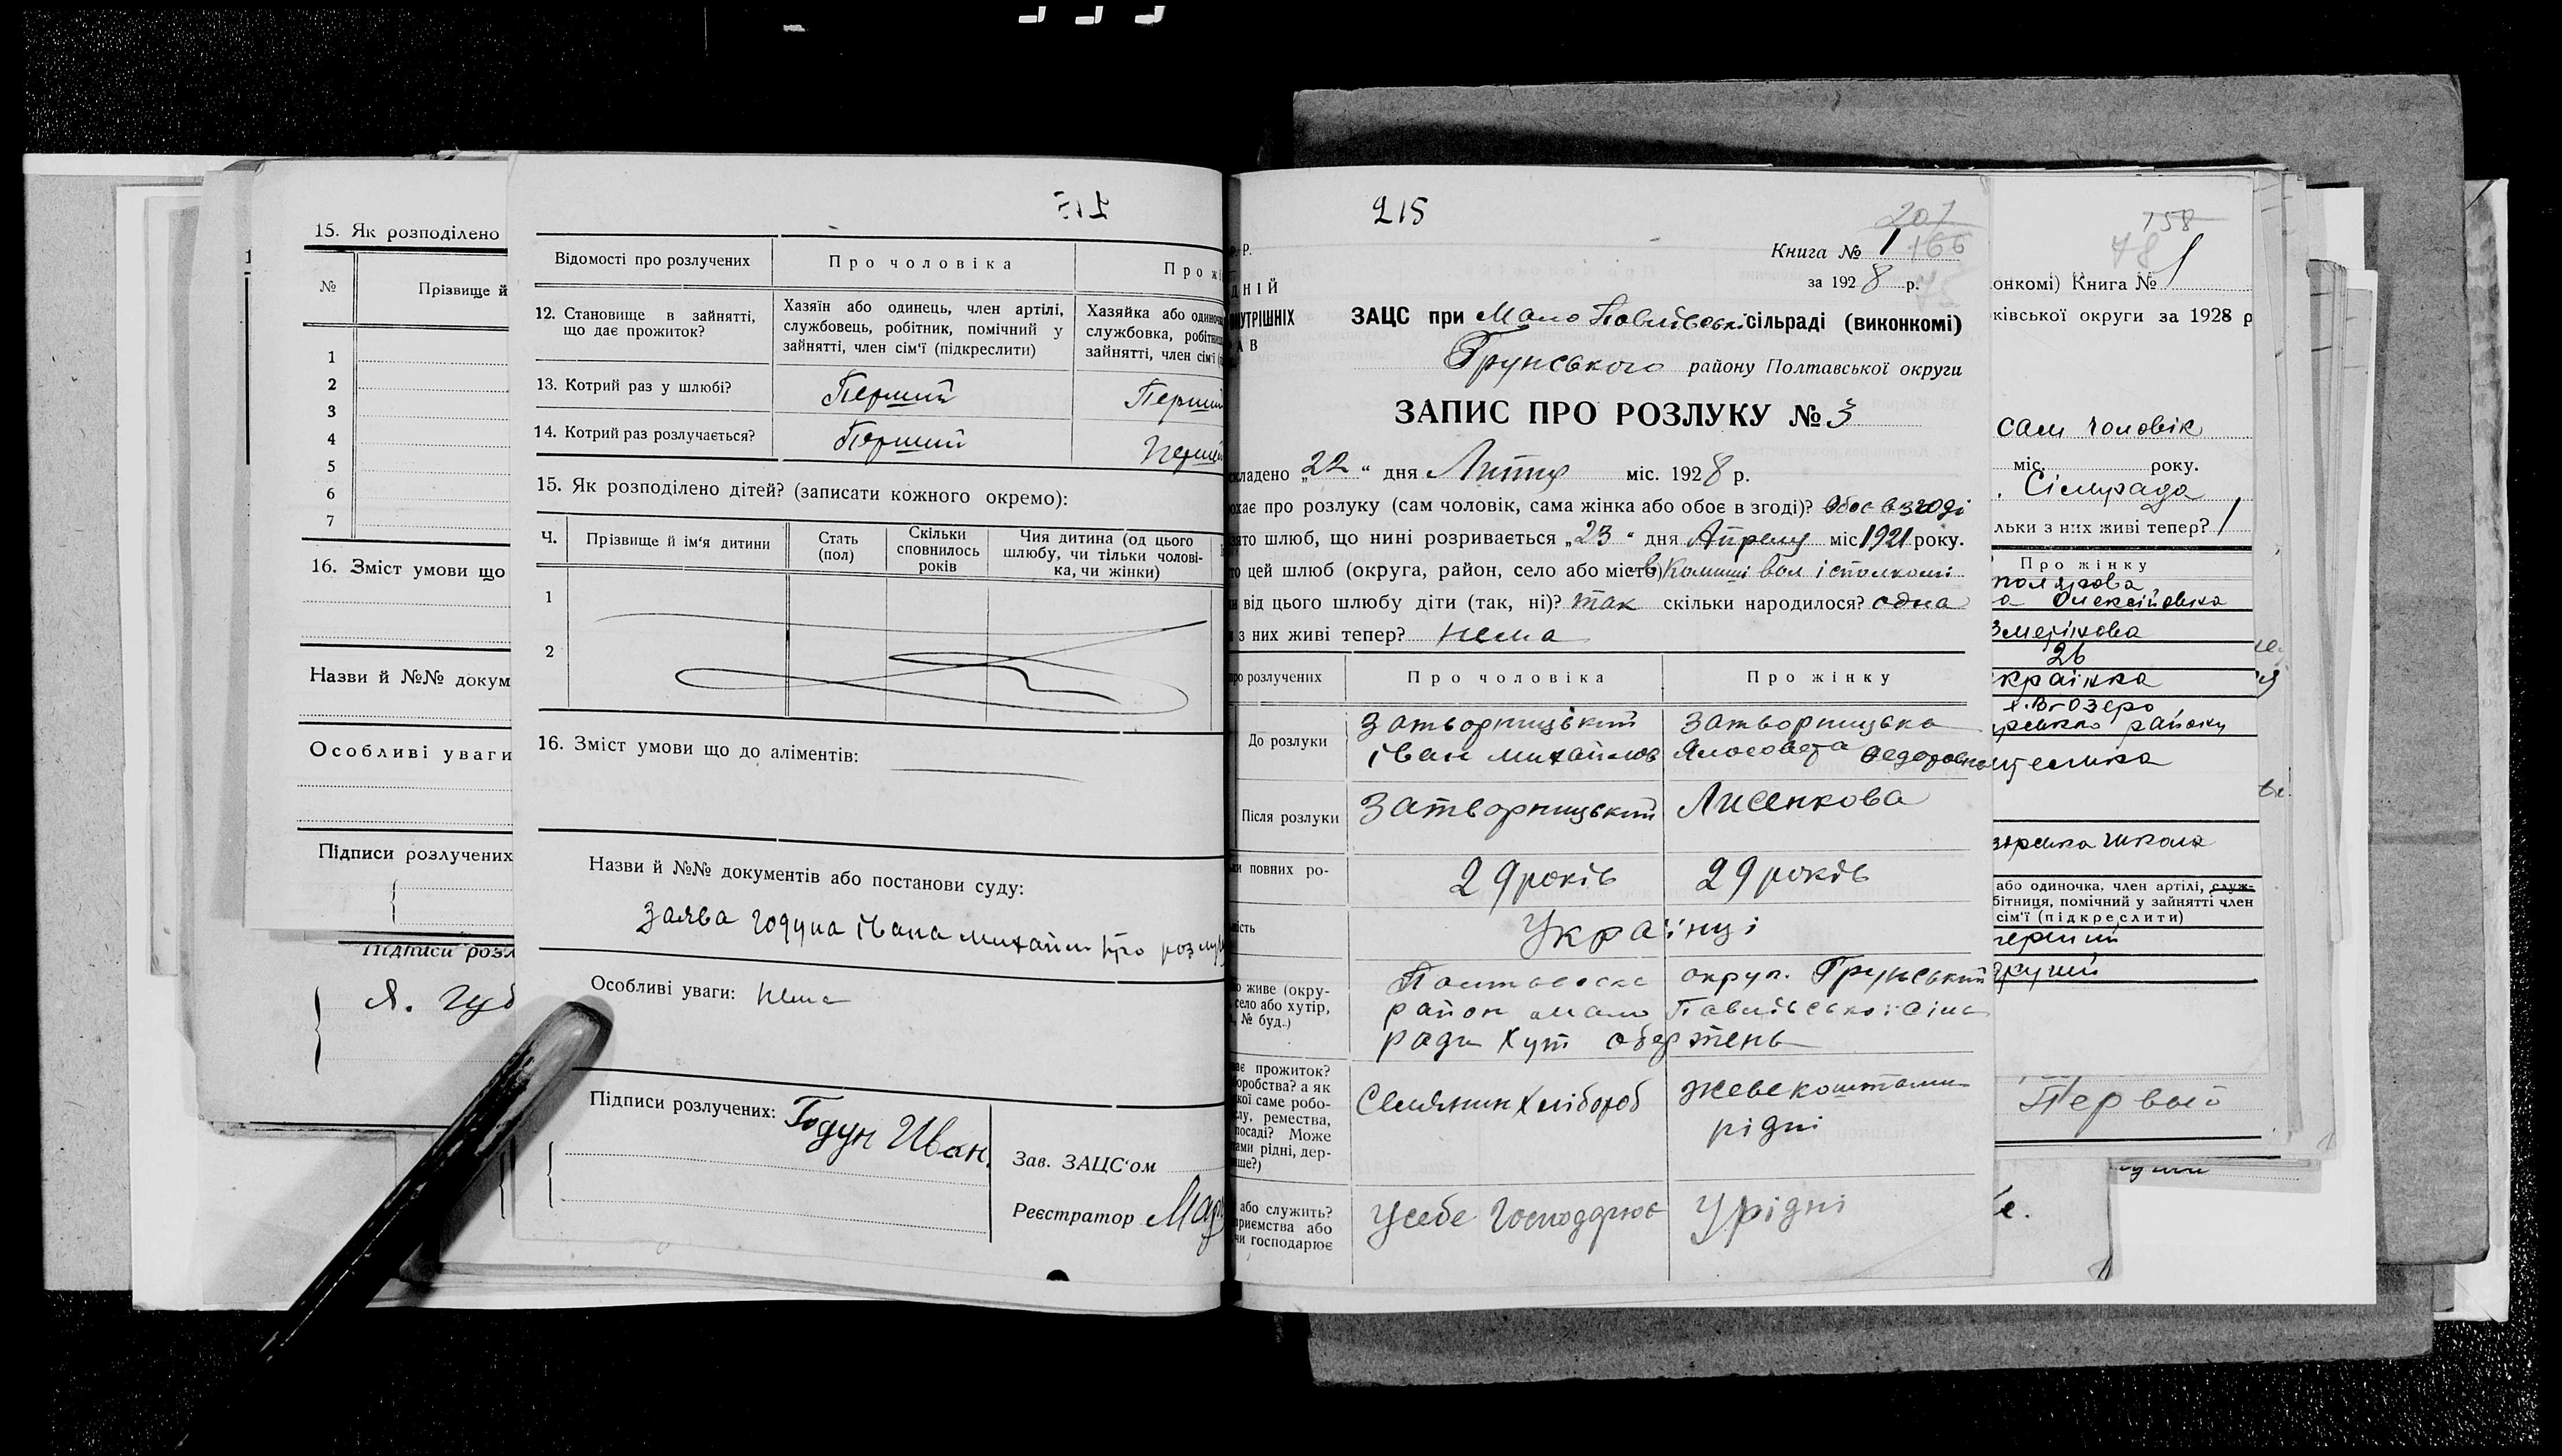 15. Як розподілено
№ Прізвище й
1
2
3
4
5
6
7
16. Зміст умови що
Назви й №№ докум
Особливі уваги
Підписи розлучених
Підписи розл
Я. Губ
Відомості про розлучених Про чоловіка Про жі
12. Становище в зайнятті,
що дає прожиток?
Хазяїн або одинець, член артілі,
службовець, робітник, помічний у
зайнятті, член сім'ї (підкреслити)
Хазяйка або одиноч
службовка, робітниц
зайнятті, член сім'ї (
13. Котрий раз у шлюбі? Перший Перший
14. Котрий раз розлучається? Перший Перший
15. Як розподілено дітей? (записати кожного окремо):
Ч. Прізвище й ім'я дитини
Стать
(пол)
Скільки
сповнилось
років
Чия дитина (од цього
шлюбу, чи тільки чолові-
ка, чи жінки)
1
2
16. Зміст умови що до аліментів:
Назви й №№ документів або постанови суду:
Заява Годуна івана михайл про розлуку
Особливі уваги: Нема
Підписи розлучених: Годун Иван.
Зав. ЗАЦС'ом
Реєстратор
215
207
Книга № 1 166
за 1928 р.
ДНІЙ
НУТРІШНІХ
АВ
ЗАЦС при Мало Павлівські сільраді (виконкомі)
Грунського району Полтавської округи
ЗАПИС ПРО РОЗЛУКУ № 3
складено „22" дня міс. 1928 р.
охає про розлуку (сам чоловік, сама жінка або обоє в згоді)? обоє в згоді
ято шлюб, що нині розривається „23" дня Апреля міс 1921 року.
то цей шлюб (округа, район, село або місто) в Комиші вол
и від цього шлюбу діти (так, ні)? так скільки народилося? одна
з них живі тепер? нема
ро розлучених Про чоловіка Про жінку
До розлуки
Затворницький Затворницька
іван михайлов Федоровна
Після розлуки Затворницький Лисенкова
ки повних ро- 29 років 29 років
ність Українці
о живе (окру-
село або хутір,
№ буд.)
Полтавська округ. Грунський
район мало Павлівської Сіль
ради Хут обертень
ає прожиток?
боробства? а як
кої саме робо-
слу, ремества,
посаді? Може
ами рідні, дер-
нше?)
Селянин Хлібороб
живе коштами
рідні
або служить?
приємства або
чи господарює
У себе Господарює У рідні
158
78
онкомі) Книга № 1
ківської округи за 1928 р
сам чоловік
міс. року.
Сільрада
льки з них живі тепер? 1
Про жінку
а Олексіївна
26
країнка
району
школа
або одиночка, член артілі, служ-
бітниця, помічний у зайнятті член
сім'ї (підкреслити)
перший
Первой